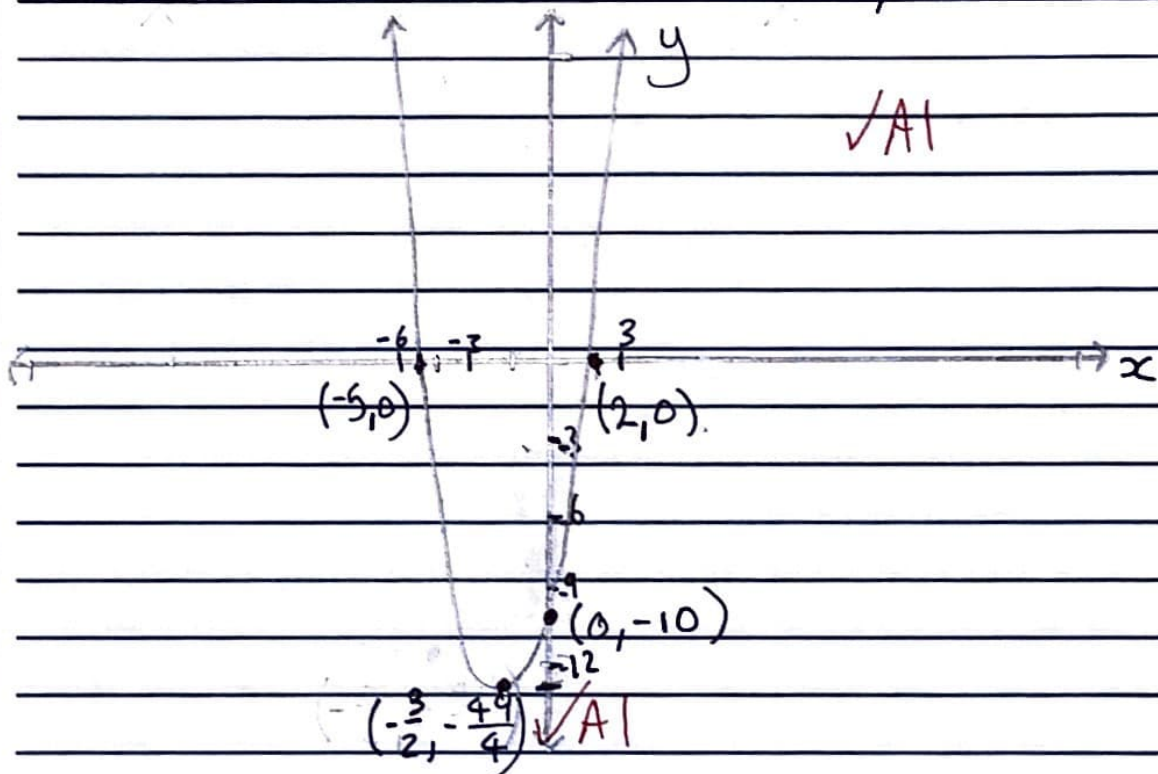 y
✓A1
-6 -3 3
x
(-5,0) (2,0).
-3
-6
-9
(0,-10)
-12
(-3/2, -49/4) ✓A1